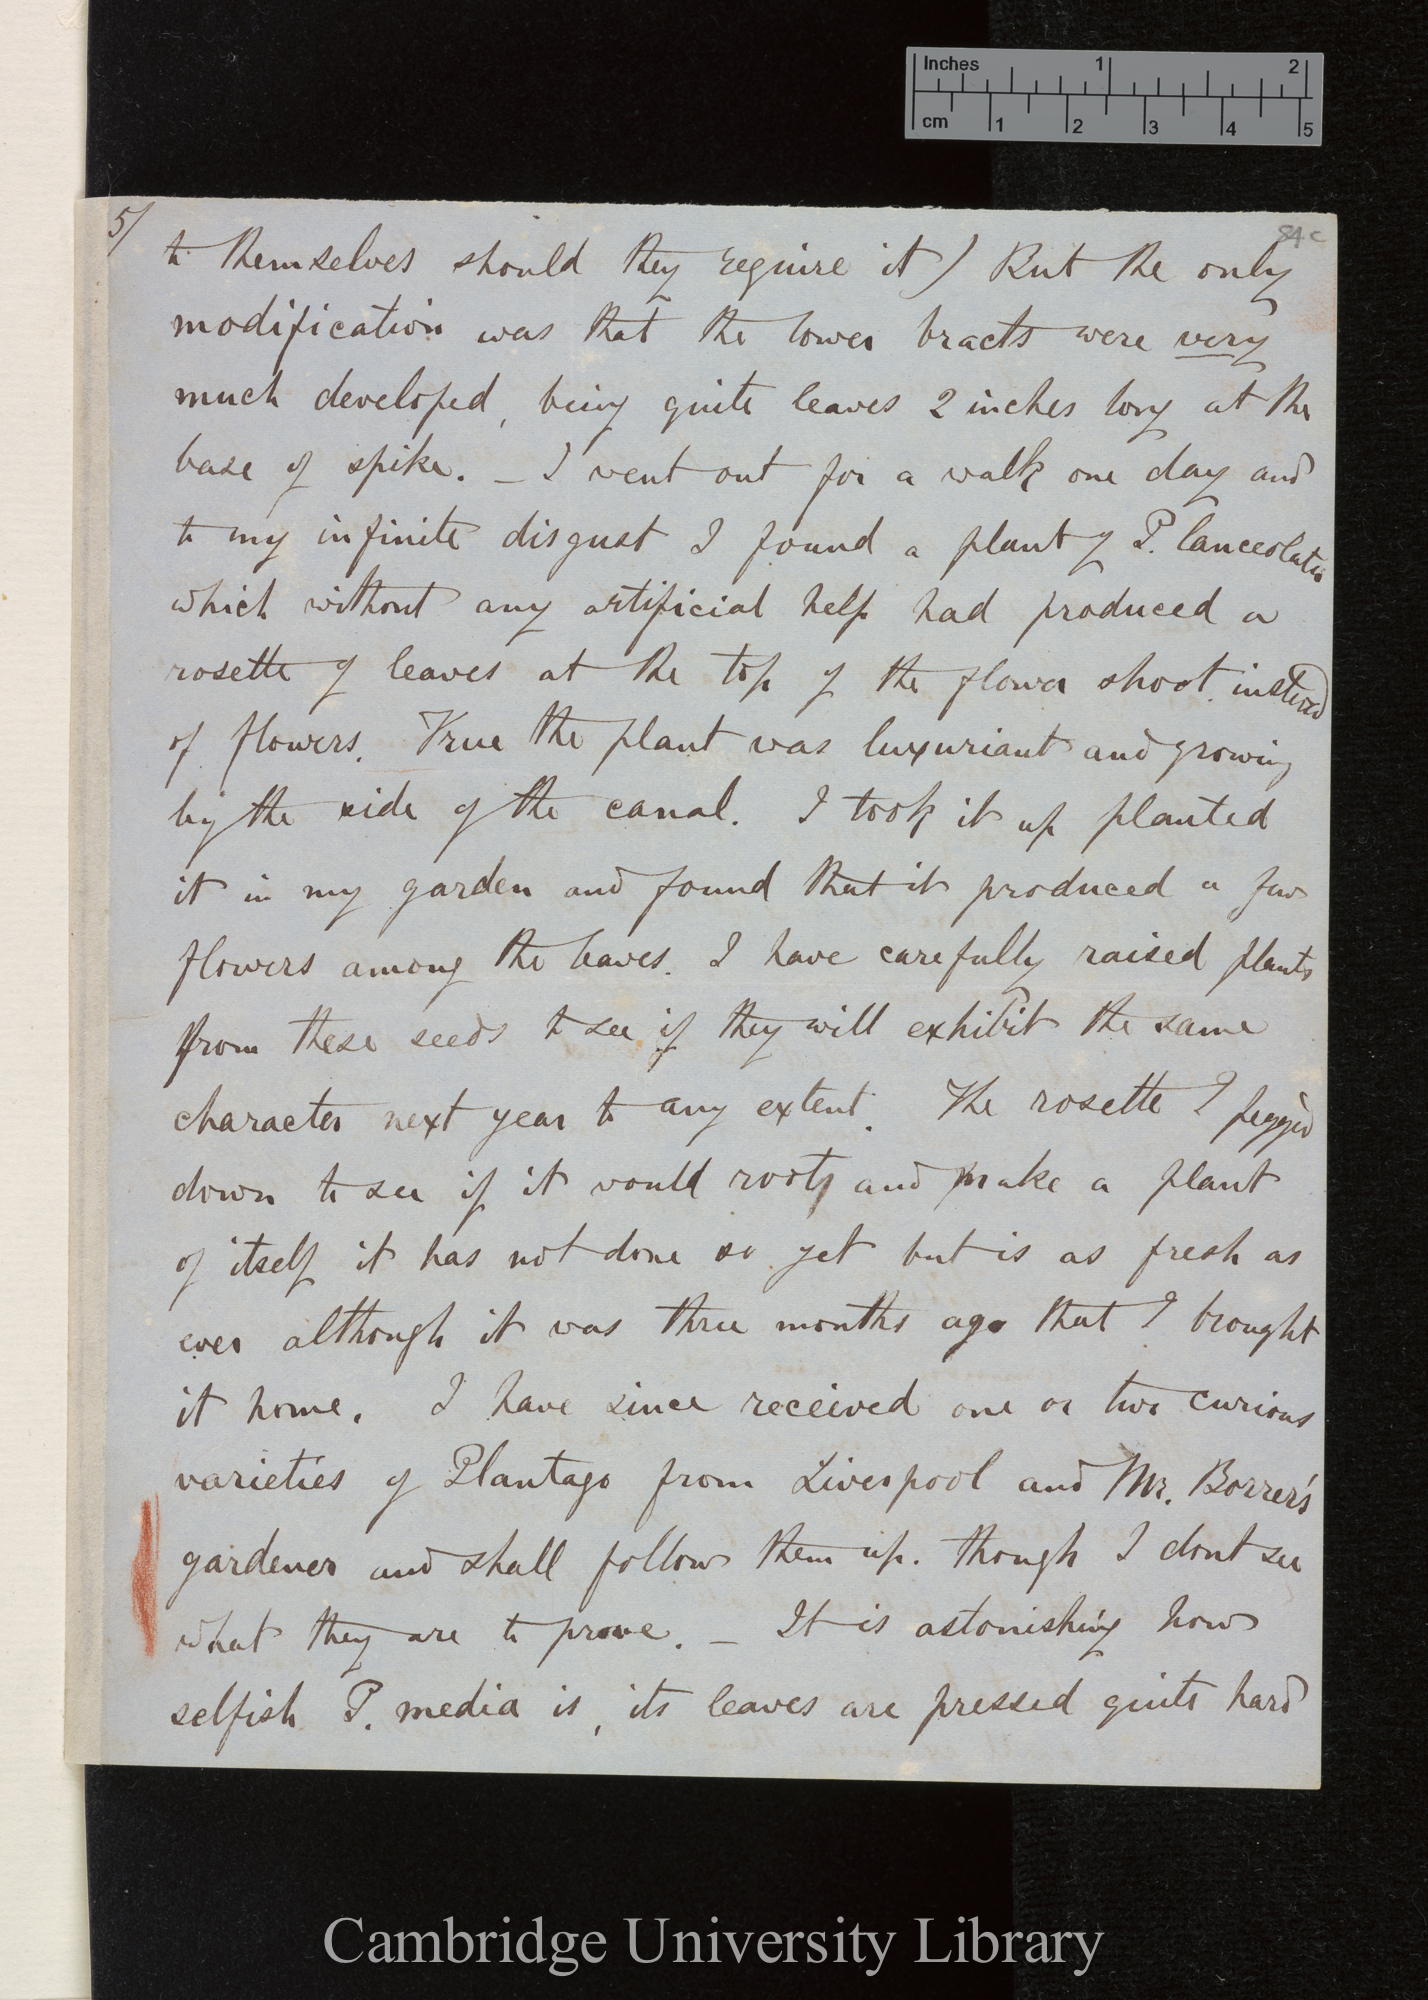 Inches 1 2
cm 1 2 3 4 5
5/
84c
to themselves should they require it) But the only
modification was that the lower bracts were very
much developed, being quite leaves 2 inches long at the
base of spike. _ I went out for a walk one day and
to my infinite disgust I found a plant of P. lanceolata
which without any artificial help had produced a
rosette of leaves at the top of the flower shoot instead
of flowers. True the plant was luxuriant and growing
by the side of the canal. I took it up planted
it in my garden and found that it produced a few
flowers among the leaves. I have carefully raised plants
from these seeds to see if they will exhibit the same
character next year to any extent. The rosette I pegged
down to see if it would root and make a plant
of itself it has not done so yet but is as fresh as
ever although it was three months ago that I brought
it home. I have since received one or two curious
varieties of Plantago from Liverpool and Mr. Borrer's
gardener and shall follow them up. though I dont see
what they are to prove. _ It is astonishing how
selfish P. media is, its leaves are pressed quite hard
Cambridge University Library